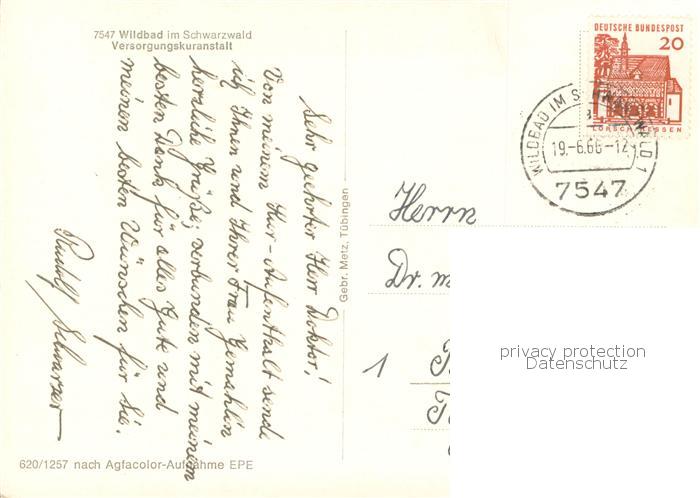 7547 Wildbad im Schwarzwald
Versorgungskuranstalt
Sehr geehrter Herr Doktor!
Von meinem Kur-Aufenthalt sende
ich Ihnen und Ihrer Frau Gemahlin
herzliche Grüße; verbunden mit meinem
besten Dank für alles Gute und
meinen besten Wünschen für Sie.
Rudolf Schwarzer
620/1257 nach Agfacolor-Aufnahme EPE
Gebr. Metz, Tübingen
DEUTSCHE BUNDESPOST
20
LORSCH/HESSEN
WILDBAD IM SCHWARZWALD 1
19.-6.66-12
7547
Herrn
Dr. m
1
privacy protection
Datenschutz